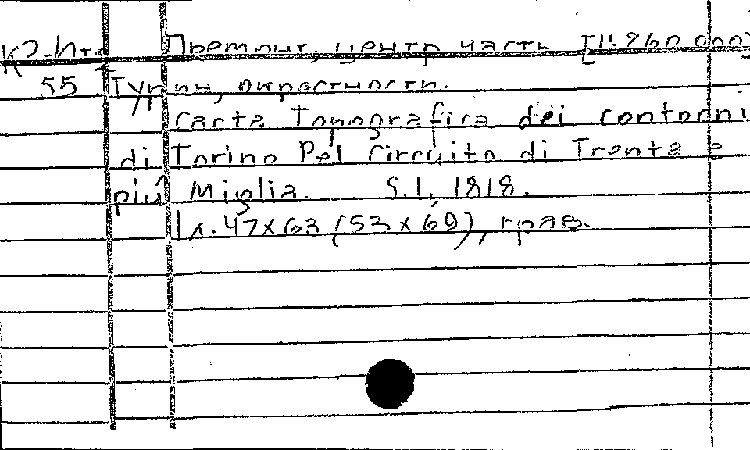 К2-Ит Пьемонт, центр. часть [1:260 000]
55 Турин, окрестности.
Carta Topografica dei contorni
di Torino Pel Circuito di Trenta e
più Miglia. S.l., 1818.
1 л. 47x63 (53x69), грав.